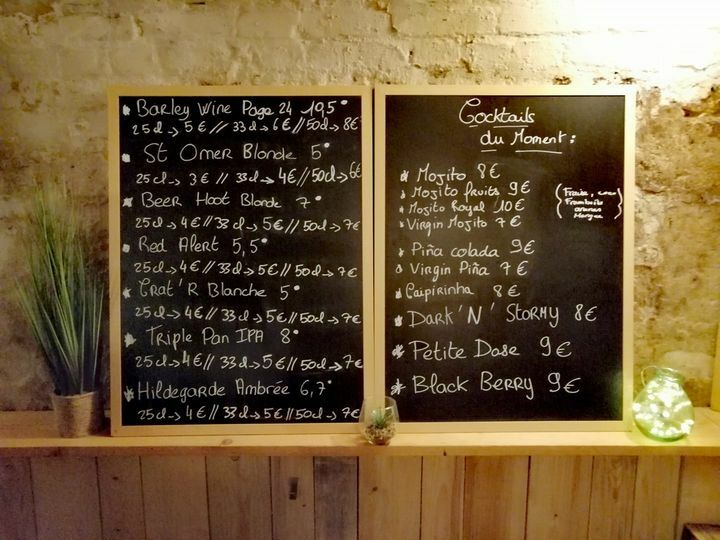 Barley Wine Page 24 10,5°
25cl → 5€ // 33cl → 6€ // 50cl → 8€
St Omer Blonde 5°
25cl → 3€ // 33cl → 4€ // 50cl → 6€
Beer Hoot Blonde 7°
25cl → 4€ // 33cl → 5€ // 50cl → 7€
Red Alert 5,5°
25cl → 4€ // 33cl → 5€ // 50cl → 7€
Crat'R Blanche 5°
25cl → 4€ // 33cl → 5€ // 50cl → 7€
Triple Pan IPA 8°
25cl → 4€ // 33cl → 5€ // 50cl → 7€
Hildegarde Ambrée 6,7°
25cl → 4€ // 33cl → 5€ // 50cl → 7€
Cocktails
du Moment :
Mojito 8€
Mojito fruits 9€
(Fraise, coco
Framboise
ananas
Mangue)
Mojito Royal 10€
Virgin Mojito 7€
Piña colada 9€
Virgin Piña 7€
Caipirinha 8€
Dark 'N' Stormy 8€
Petite Dose 9€
Black Berry 9€